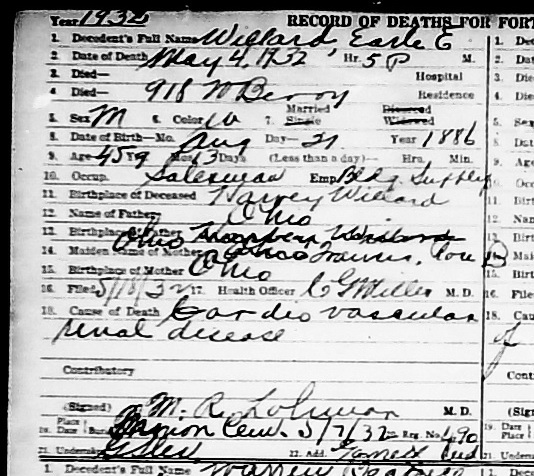 Year 1932 RECORD OF DEATHS FOR FORT
1. Decedent's Full Name Willard, Earle E 1. Dec
2. Date of Death May 4, 1932, Hr. 5 P M. 2. Dat
3. Died— Hospital 3. Died
4. Died— 918 W Berry Residence 4. Died
5. Sex M 6. Color W 7. Married Single Divorced Widowed 5. Sex
8. Date of Birth—Mo. Aug Day— 21 Year 1886 8. Date
9. Age 45 Days (Less than a day)— Hrs. Min. 9. Age
10. Occup. Salesman Emp. Bldg Supply Occup.
11. Birthplace of Deceased Harvey Willard 11. Birt
12. Name of Father Ohio 12. Nan
13. Birthplace of Father Ohio 13. Birt
14. Maiden Name of Mother 14. Mai
15. Birthplace of Mother Ohio 15. Birt
16. Filed 5/10/32 17. Health Officer C G Miller M. D. 16. File
18. Cause of Death Cardio vascular 18. Cau
renal disease of
Contributory Cont
(Signed) M. R. Lohman M. D. (Sign
19. Place Date Cem. 5/7/32 20. Reg. No. 490 19. Date Place
21. Undertaker 22. Add. Garrett Ind 21. Under
1. Decedent's Full Name Warren 1. Dec